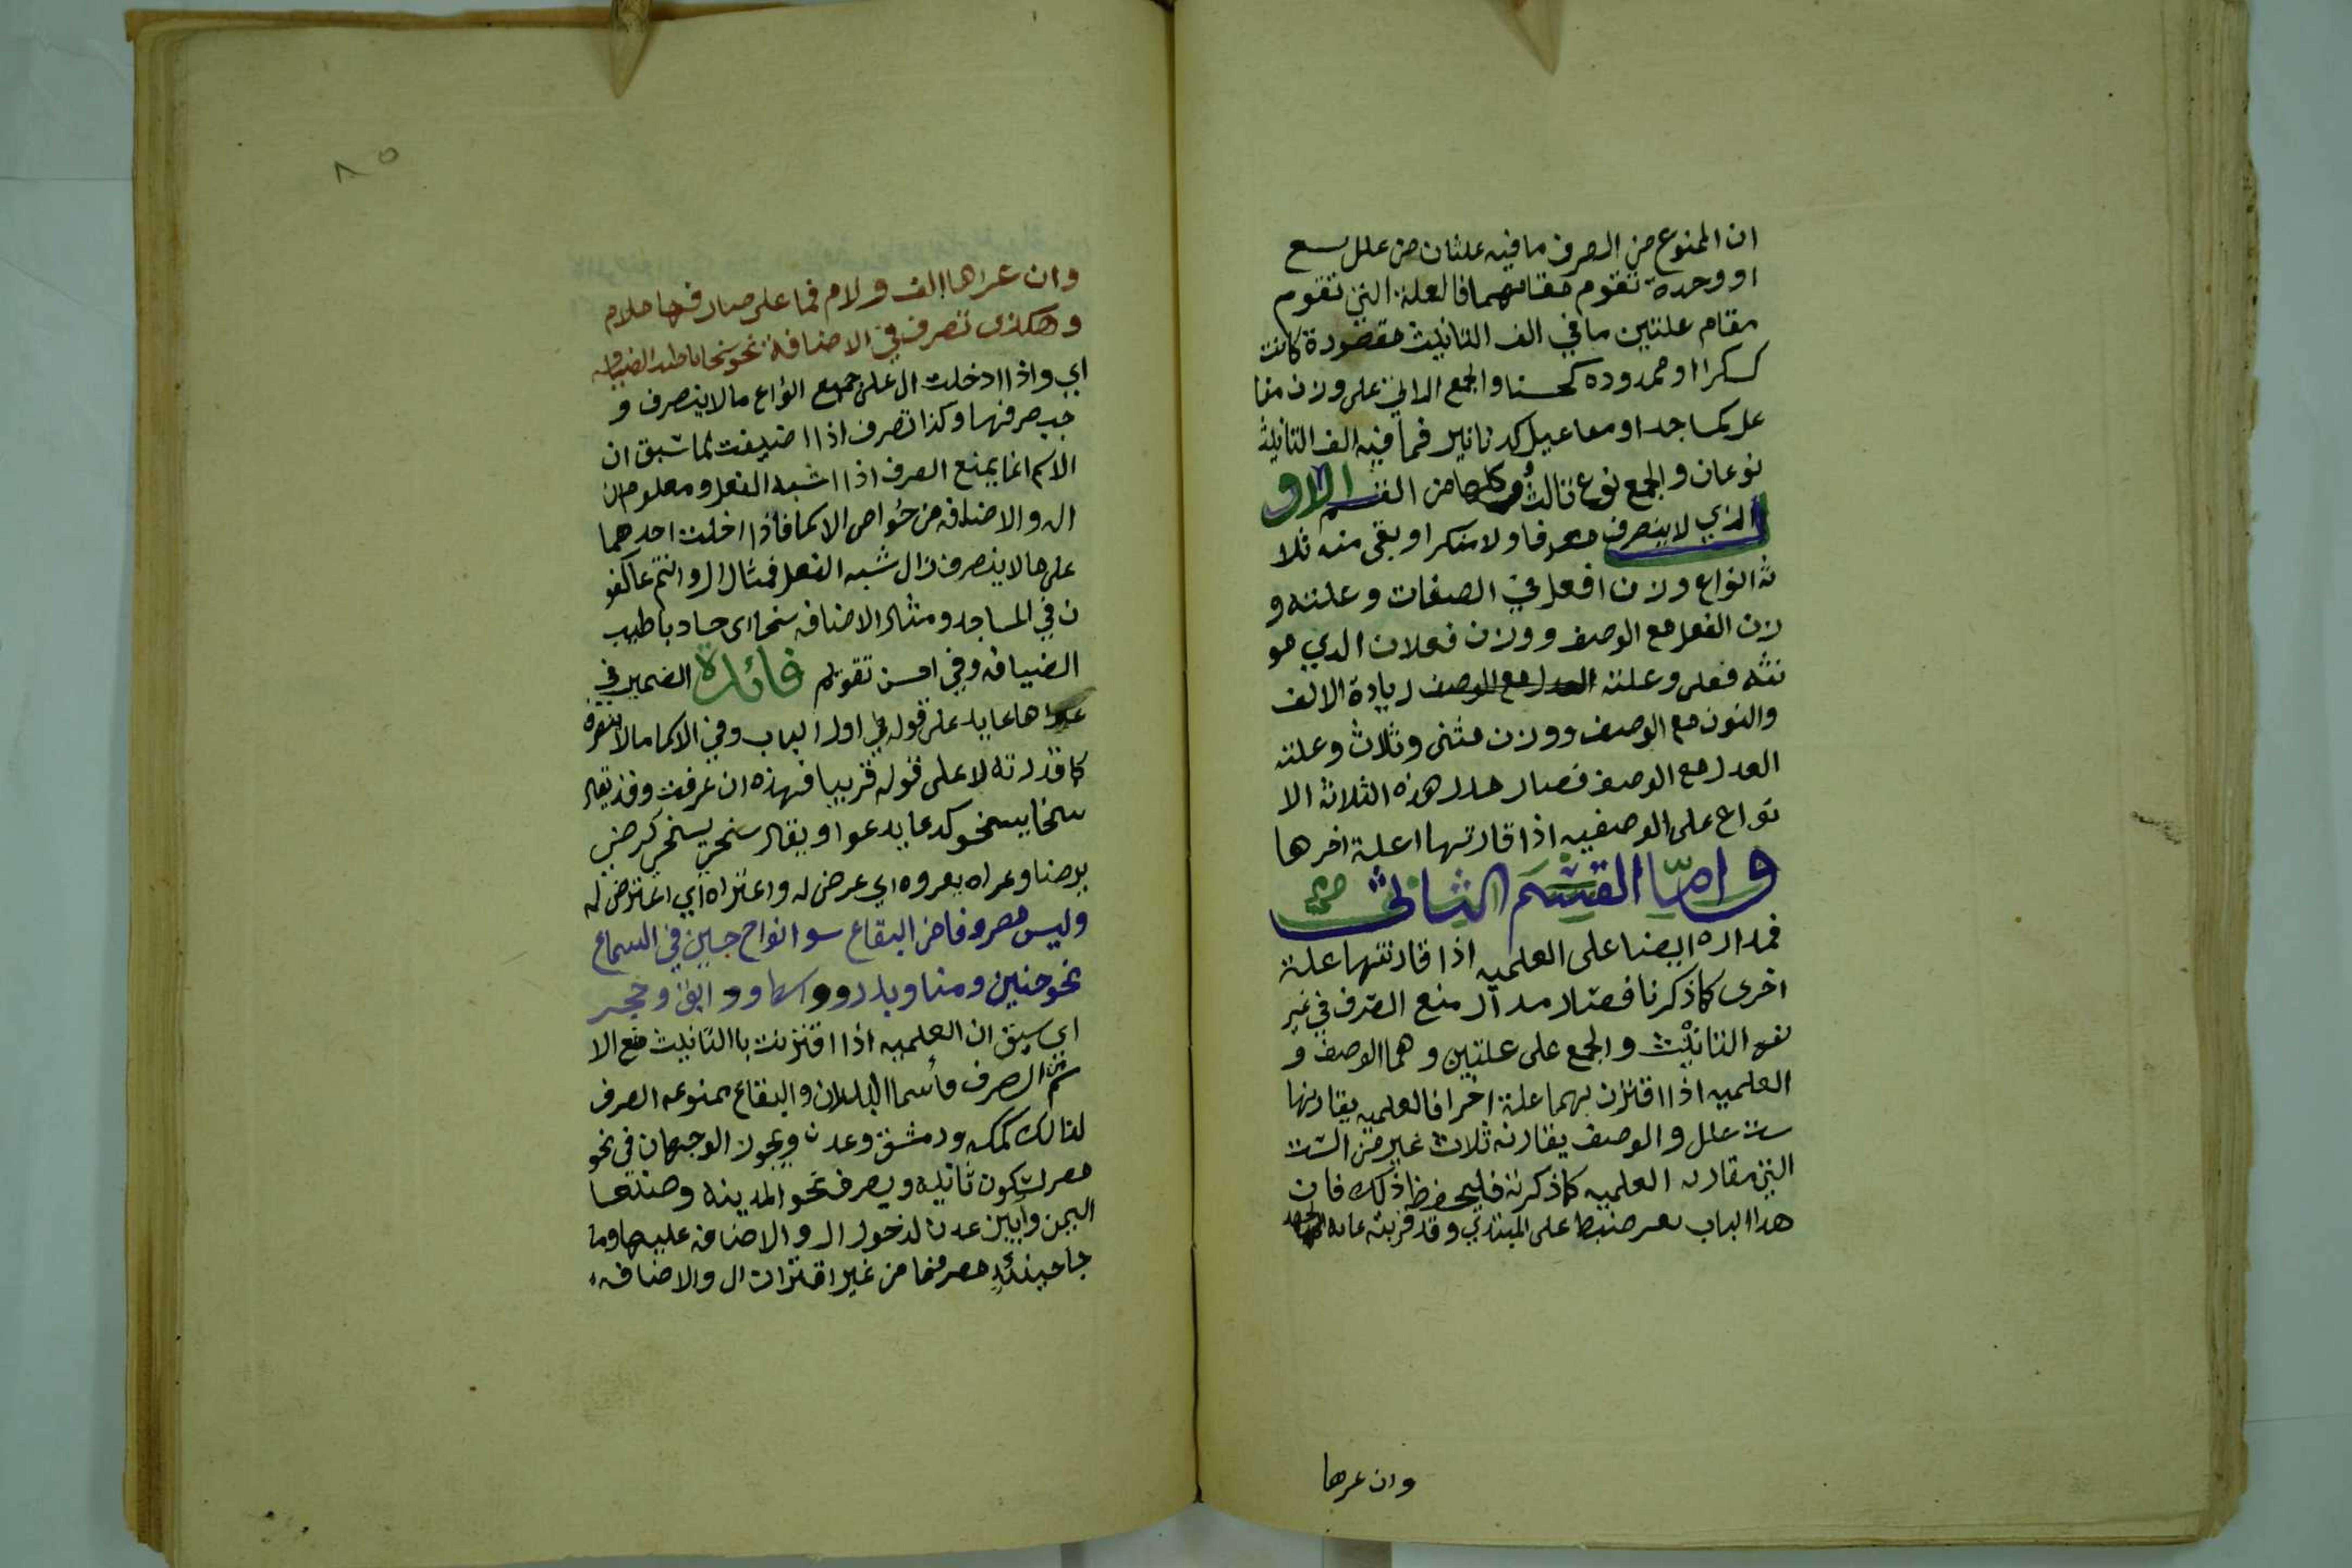 ان الممنوع من الصرف ما فيه علتان من علل تسع
او وحدة تقوم مقامهما فالعلة التي تقوم
مقام علتين ما في الف التانيث مقصورة كانت
كسكرا او ممدوده كحسنا والجمع الداني على وزن مفا
عل كمساجد او مفاعيل كدنانير فما فيه الف التانيث
نوعان والجمع نوع ثالث وكلها من القسم الاو
الذي لا ينصرف معرفا ولا منكرا وبقي منه ثلا
ثه انواع وزن افعل في الصفات وعلته و
زن الفعل مع الوصف ووزن فعلان الذي مو
نثه فعلى وعلته زيادة الالف
والنون مع الوصف ووزن مثنى وثلاث وعلته
العدل مع الوصف فصار مدار هذه الثلاثه الا
نواع على الوصفيه اذا قارتها اعلة اخرها
واما القسم الثاني
فمداره ايضا على العلميه اذا قارنتها علة
اخرى كما ذكرنا فصار مدار منع الصرف في غير
نوع التانيث والجمع على علتين وهما الوصف و
العلميه اذا اقترن بهما علة اخرا فالعلميه يقارنها
ست علل والوصف يقارنه ثلاث غير من الست
التي تقارن العلميه كما ذكرته فليحفظ ذلك فان
هذا الباب يعسر ضبط على المبتدي وقد قربته غايه
وان عرها
٨٥
وان عراها الف ولام فما على صارفها ملام
وهكذى تصرف في الاضافة نحو سخا باطيب الضيافه
اي واذا ادخلت ال على جميع انواع ما لا ينصرف و
جب صرفها وكذا تصرف اذا اضيفت لما سبق ان
الاسم انما يمنع الصرف اذا اشبه الفعل ومعلوم ان
ال والاضافه من خواص الاسما فاذا ادخلت احدهما
على ما لا ينصرف زال شبه الفعل فمثال ال وانتم عاكفو
ن في المساجد ومثال الاضافه سخا اى جاد باطيب
الضيافه وفي احسن تقويم فائدة الضمير في
عراها عايد على قوله في اول الباب وفي الاسما ما لا ينصرف
كما قدرته لا على قوله قريبا فهذه ان عرفت وقد يقال
سخا يسخو كدعا يدعوا ويقال سخي يسخى كرضي
يرضا وعراه يعروه اي عرض له واعتراه اي اعترض له
وليس مصروفا من البقاع سوا نواح جين في السماع
نحو حنين ومنا وبدر وواسط ودابق وحجر
اي سبق ان العلميه اذا اقترنت بالتانيث منع الا
سم من الصرف واسما البلدان والبقاع ممنوعه الصرف
لذالك كمكه ودمشق وعدن ويجوز الوجهان في نحو
مصر لسكون ثانيه ويصرف نحو المدينه وصنعا
اليمن وابين عدن لدخول ال والاضافه عليها وما
جا حينئذ مصرفا من غير اقتران ال والاضافه